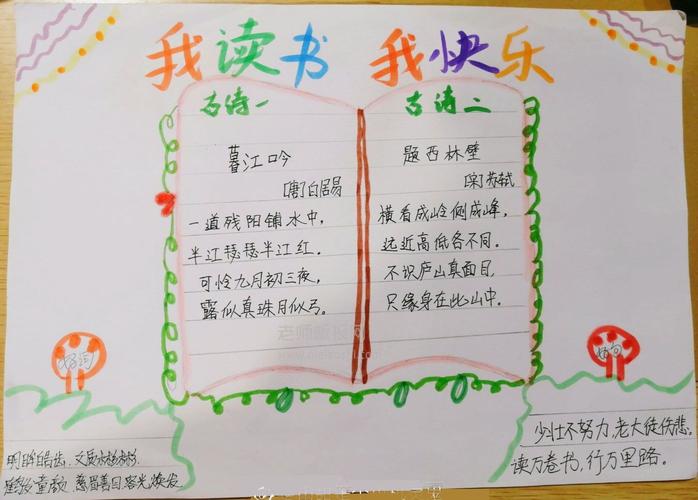 我读书 我快乐
古诗一
暮江吟
[唐]白居易
一道残阳铺水中,
半江瑟瑟半江红.
可怜九月初三夜,
露似真珠月似弓。
古诗二
题西林壁
[宋]苏轼
横看成岭侧成峰,
远近高低各不同。
不识庐山真面目,
只缘身在此山中.
好词
明眸皓齿、文质彬彬
童颜 慈眉善目、容光焕发
好句
少壮不努力,老大徒伤悲。
读万卷书,行万里路。
老师板报网